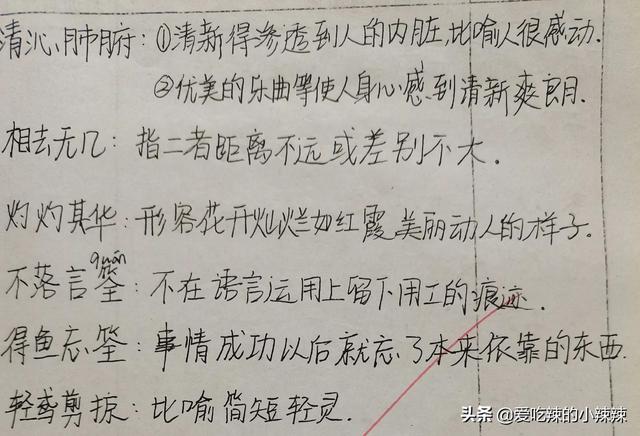 清沁肺腑：①清新得渗透到人的内脏，比喻人很感动．
②优美的乐曲等使人身心感到清新爽朗．
相去无几：指二者距离不远或差别不大．
灼灼其华：形容花开灿烂如红霞美丽动人的样子．
quán
不落言筌：不在语言运用上留下用工的痕迹．
得鱼忘筌：事情成功以后就忘了本来依靠的东西．
轻鸢剪掠：比喻简短轻灵．
头条 @爱吃辣的小辣辣